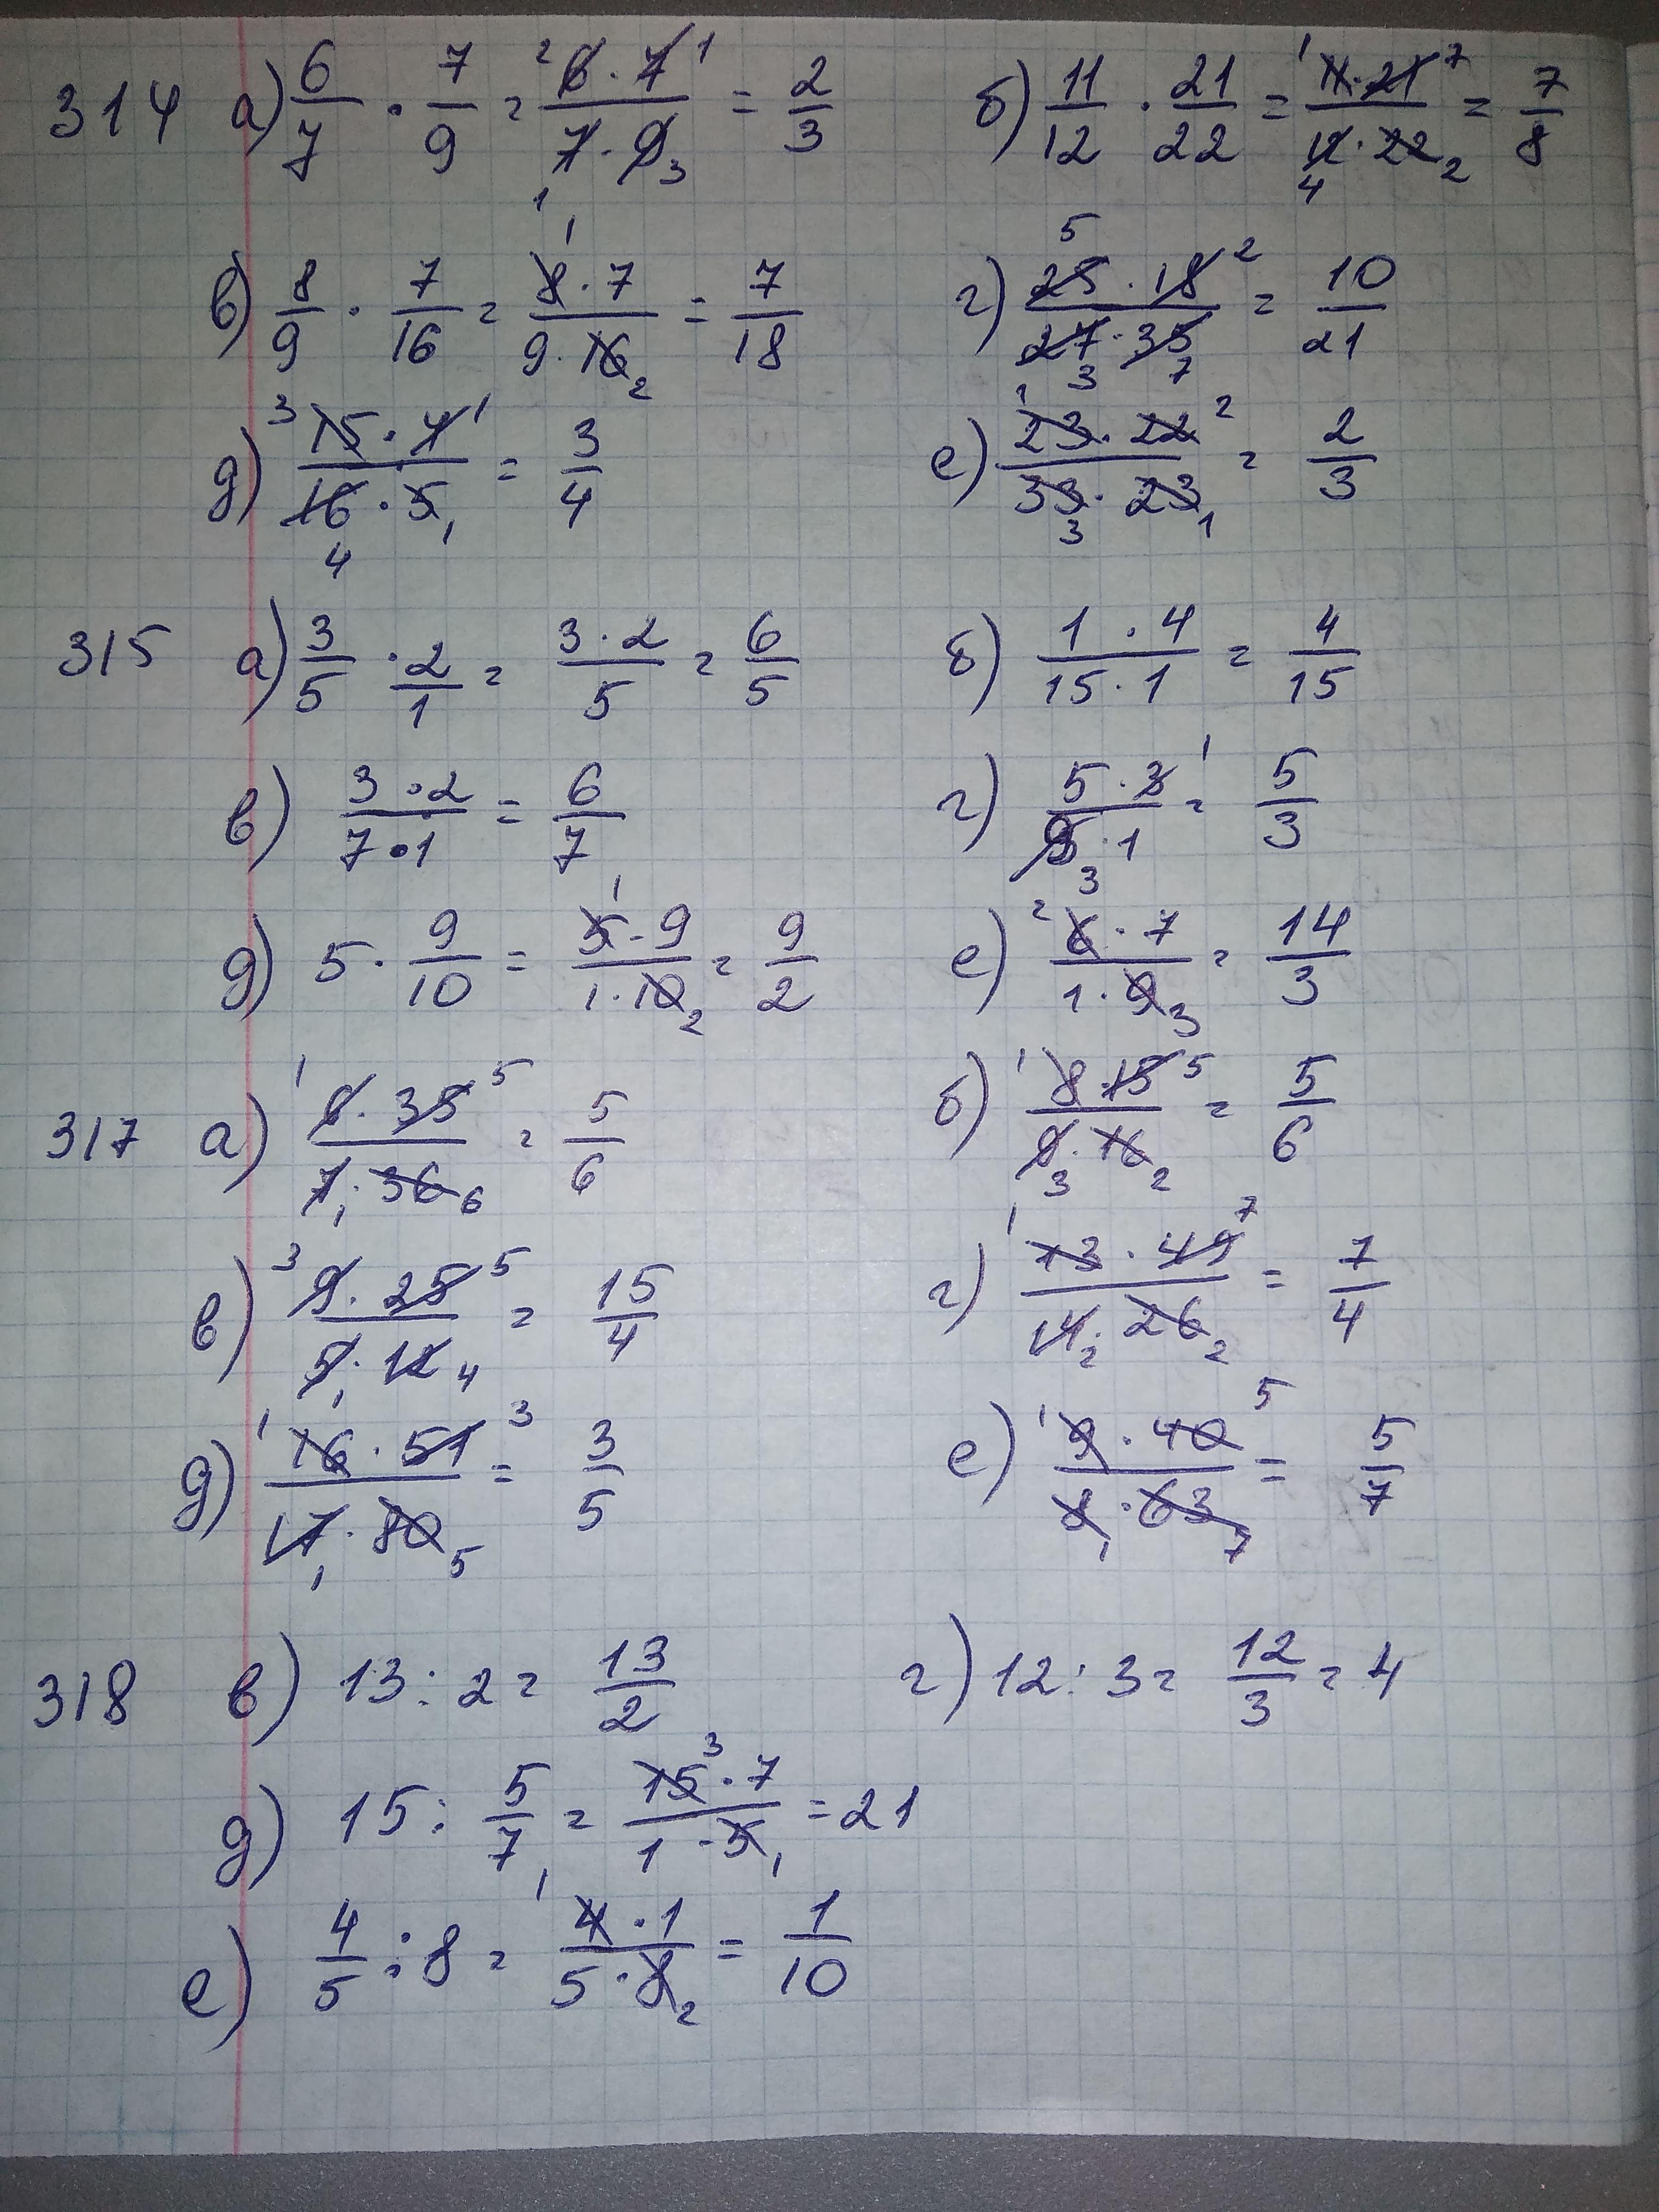 314 а) 6/7 · 7/9 = 6·7/7·9 = 2/3 б) 11/12 · 21/22 = 11·21/12·22 = 7/8
в) 8/9 · 7/16 = 8·7/9·16 = 7/18 г) 25·18/27·35 = 10/21
д) 15·4/16·5 = 3/4 е) 23·22/33·23 = 2/3
315 а) 3/5 · 2/1 = 3·2/5 = 6/5 б) 1·4/15·1 = 4/15
в) 3·2/7·1 = 6/7 г) 5·3/9·1 = 5/3
д) 5 · 9/10 = 5·9/1·10 = 9/2 е) 6·7/1·9 = 14/3
317 а) 6·35/7·36 = 5/6 б) 8·15/9·16 = 5/6
в) 9·25/5·12 = 15/4 г) 13·49/14·26 = 7/4
д) 16·51/17·80 = 3/5 е) 9·40/8·63 = 5/7
318 в) 13 : 2 = 13/2 г) 12 : 3 = 12/3 = 4
д) 15 : 5/7 = 15·7/1·5 = 21
е) 4/5 : 8 = 4·1/5·8 = 1/10